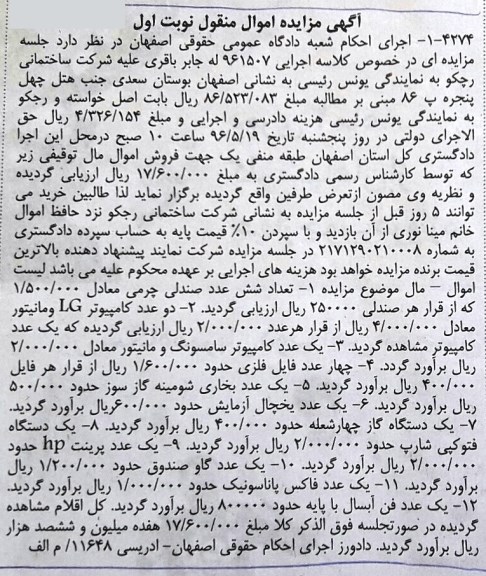 آگهی مزایده اموال منقول نوبت اول
۱-۴۲۷۴- اجرای احکام شعبه دادگاه عمومی حقوقی اصفهان در نظر دارد جلسه
مزایده ای در خصوص کلاسه اجرایی ۹۶۱۵۰۷ له جابر باقری علیه شرکت ساختمانی
رچکو به نمایندگی یونس رئیسی به نشانی اصفهان بوستان سعدی جنب هتل چهل
پنجره پ ۸۶ مبنی بر مطالبه مبلغ ۸۶/۵۲۳/۰۸۳ ریال بابت اصل خواسته و رجکو
به نمایندگی یونس رئیسی هزینه دادرسی و اجرایی و مبلغ ۴/۳۲۶/۱۵۴ ریال حق
الاجرای دولتی در روز پنجشنبه تاریخ ۹۶/۵/۱۹ ساعت ۱۰ صبح درمحل این اجرا
دادگستری کل استان اصفهان طبقه منفی یک جهت فروش اموال مال توقیفی زیر
که توسط کارشناس رسمی دادگستری به مبلغ ۱۷/۶۰۰/۰۰۰ ریال ارزیابی گردیده
و نظریه وی مصون ازتعرض طرفین واقع گردیده برگزار نماید لذا طالبین خرید می
توانند ۵ روز قبل از جلسه مزایده به نشانی شرکت ساختمانی رجکو نزد حافظ اموال
خانم مینا نوری از آن بازدید و با سپردن ۱۰٪ قیمت پایه به حساب سپرده دادگستری
به شماره ۲۱۷۱۲۹۰۲۱۰۰۰۸ در جلسه مزایده شرکت نمایند پیشنهاد دهنده بالاترین
قیمت برنده مزایده خواهد بود هزینه های اجرایی بر عهده محکوم علیه می باشد لیست
اموال – مال موضوع مزایده ۱- تعداد شش عدد صندلی چرمی معادل ۱/۵۰۰/۰۰۰
که از قرار هر صندلی ۲۵۰۰۰۰ ریال ارزیابی گردید. ۲- دو عدد کامپیوتر LG ومانیتور
معادل ۴/۰۰۰/۰۰۰ ریال از قرار هرعدد ۲/۰۰۰/۰۰۰ ریال ارزیابی گردیده که یک عدد
کامپیوتر مشاهده گردید. ۳- یک عدد کامپیوتر سامسونگ و مانیتور معادل ۲/۰۰۰/۰۰۰
ریال برآورد گردد. ۴- چهار عدد فایل فلزی حدود ۱/۶۰۰/۰۰۰ ریال از قرار هر فایل
۴۰۰/۰۰۰ ریال برآورد گردید. ۵- یک عدد بخاری شومینه گاز سوز حدود ۵۰۰/۰۰۰
ریال برآورد گردید. ۶- یک عدد یخچال آزمایش حدود ۶۰۰/۰۰۰ریال برآورد گردید.
۷- یک دستگاه گاز چهارشعله حدود ۴۰۰/۰۰۰ ریال برآورد گردید. ۸- یک دستگاه
فتوکپی شارپ حدود ۲/۰۰۰/۰۰۰ ریال برآورد گردید. ۹- یک عدد پرینت hp حدود
۲/۰۰۰/۰۰۰ ریال برآورد گردید. ۱۰- یک عدد گاو صندوق حدود ۱/۲۰۰/۰۰۰ ریال
برآورد گردید. ۱۱- یک عدد فاکس پاناسونیک حدود ۱/۰۰۰/۰۰۰ ریال برآورد گردید.
۱۲- یک عدد فن آبسال با پایه حدود ۸۰۰۰۰۰ ریال برآورد گردید. کل اقلام مشاهده
گردیده در صورتجلسه فوق الذکر کلا مبلغ ۱۷/۶۰۰/۰۰۰ هفده میلیون و ششصد هزار
ریال برآورد گردید. دادورز اجرای احکام حقوقی اصفهان- ادریسی ۱۱۶۴۸/ م الف